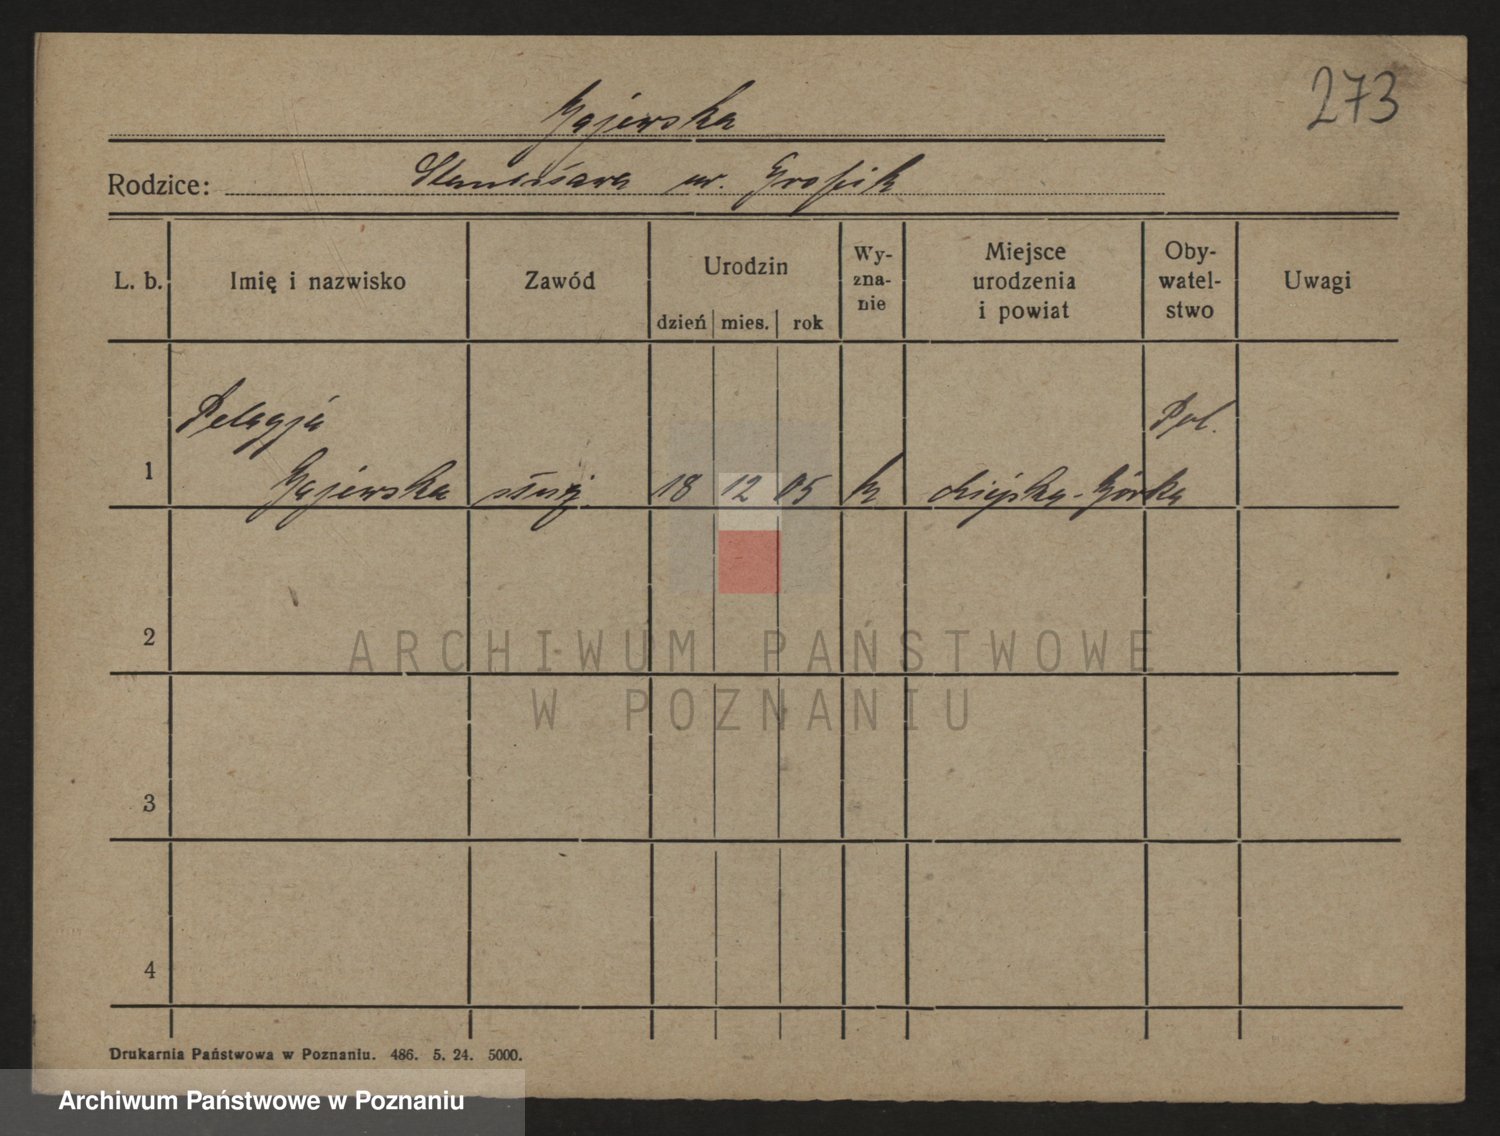 273
Gajewska
Rodzice: Stanisława ur. Grofik
L. b. Imię i nazwisko Zawód Urodzin dzień mies. rok Wy-zna-nie Miejsce urodzenia i powiat Oby-watel-stwo Uwagi
Pelagja Pol.
1 Gajewska służ. 18 12 05 k Miejska-Górka
2
ARCHIWUM PAŃSTWOWE
W POZNANIU
3
4
Drukarnia Państwowa w Poznaniu. 486. 5. 24. 5000.
Archiwum Państwowe w Poznaniu